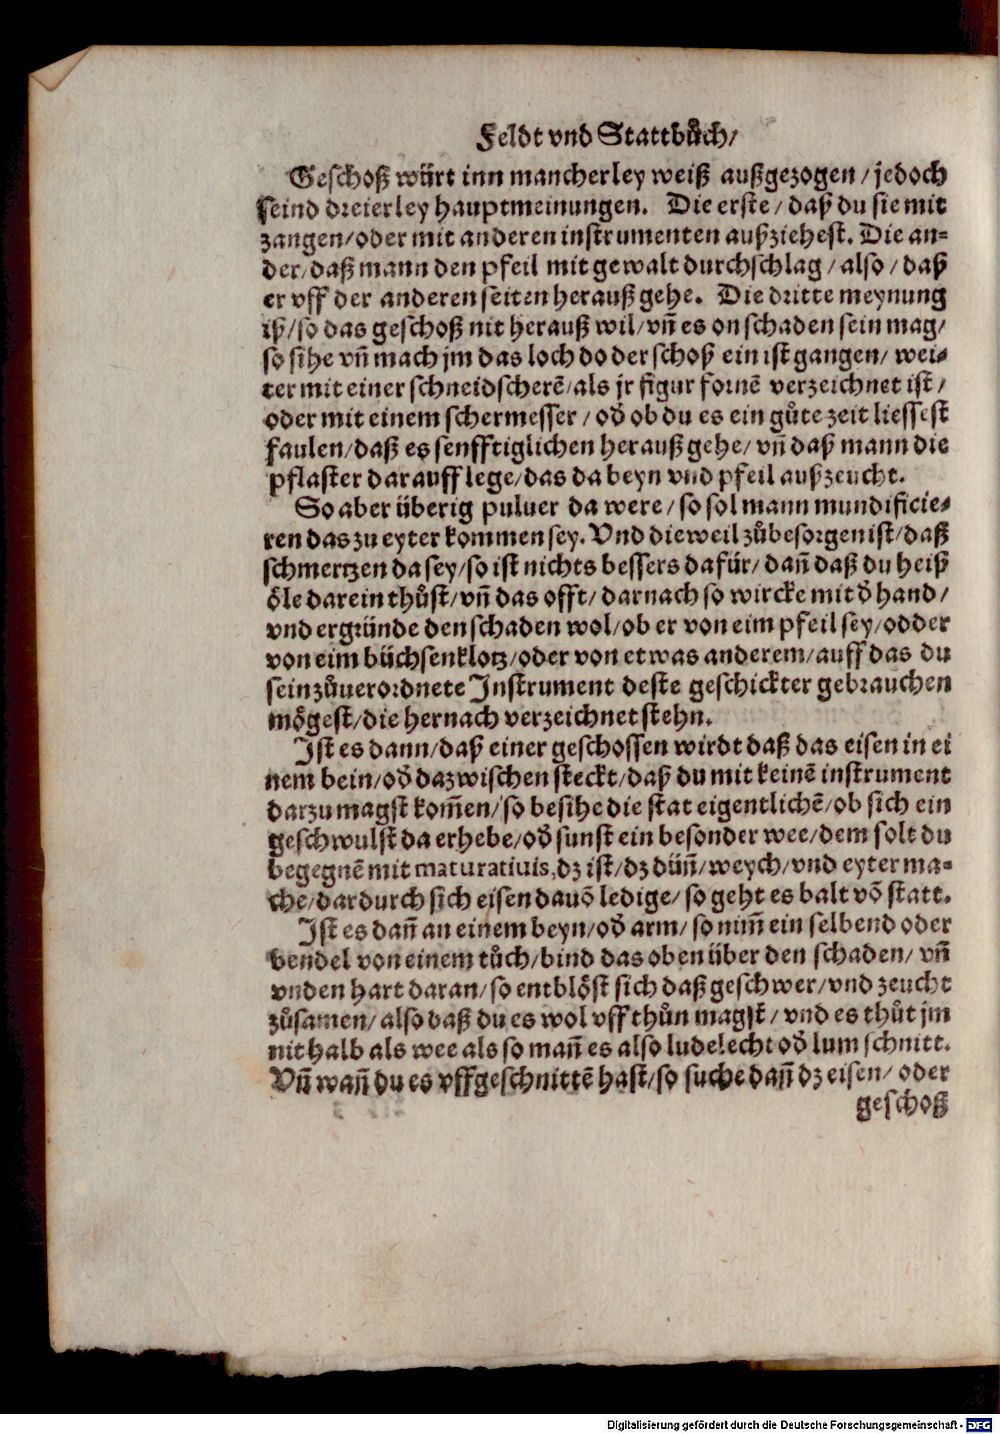 Feldt vnd Stattbůch/
Geschoß würt inn mancherley weiß außgezogen/jedoch
seind dreierley hauptmeinungen. Die erste/daß du sie mit
zangen/oder mit anderen instrumenten außziehest. Die an-
der/daß mann den pfeil mit gewalt durchschlag/also/daß
er vff der anderen seiten herauß gehe. Die dritte meynung
iß/so das geschoß nit herauß wil/vñ es on schaden sein mag/
so sihe vñ mach jm das loch do der schoß ein ist gangen/wei-
ter mit einer schneidscherē/als jr figur fornē verzeichnet ist/
oder mit einem schermesser/oď ob du es ein gůte zeit liessest
faulen/daß es senfftiglichen herauß gehe/vñ daß mann die
pflaster darauff lege/das da beyn vnd pfeil außzeucht.
So aber überig puluer da were/so sol mann mundificie-
ren das zu eyter kommen sey. Vnd dieweil zůbesorgen ist/daß
schmertzen da sey/so ist nichts bessers dafür/dañ daß du heiß
öle darein thůst/vñ das offt/darnach so wircke mit ď hand/
vnd ergründe den schaden wol/ob er von eim pfeil sey/odder
von eim büchsenklotz/oder von etwas anderem/auff das du
sein zůuerordnete Instrument deste geschickter gebrauchen
mögest/die hernach verzeichnet stehn.
Ist es dann/daß einer geschossen wirdt daß das eisen in ei
nem bein/oď dazwischen steckt/daß du mit keinē instrument
darzu magst kom̃en/so besihe die stat eigentlichē/ob sich ein
geschwulst da erhebe/oď sunst ein besonder wee/dem solt du
begegnē mit maturatiuis,dz ist/dz düñ/weych/vnd eyter ma-
che/dardurch sich eisen dauō ledige/so geht es balt vō statt.
Ist es dañ an einem beyn/oď arm/so nim̃ ein selbend oder
bendel von einem tůch/bind das oben über den schaden/vñ
vnden hart daran/so entblöst sich daß geschwer/vnd zeucht
zůsamen/also daß du es wol vff thůn magst/vnd es thůt jm
nit halb als wee als so mañ es also ludelecht oď lum schnitt.
Vñ wañ du es vffgeschnittē hast/so suche dañ dz eisen/oder
geschoß
Digitalisierung gefördert durch die Deutsche Forschungsgemeinschaft - DFG